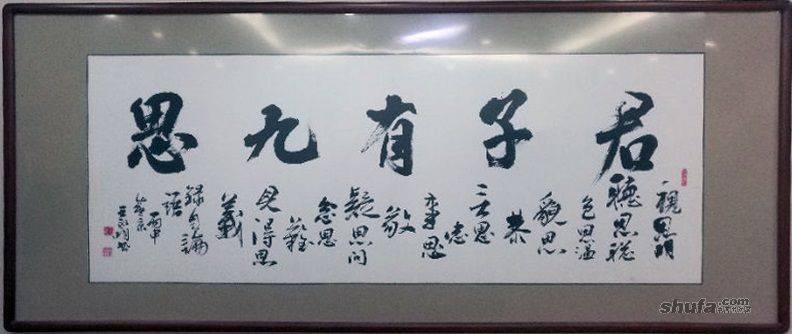 君子有九思
視思明
聽思聰
色思溫
貌思
恭
言思
忠
事思
敬
疑思問
忿思
難
見得思
義
録自論
語
丙申
shufa.com